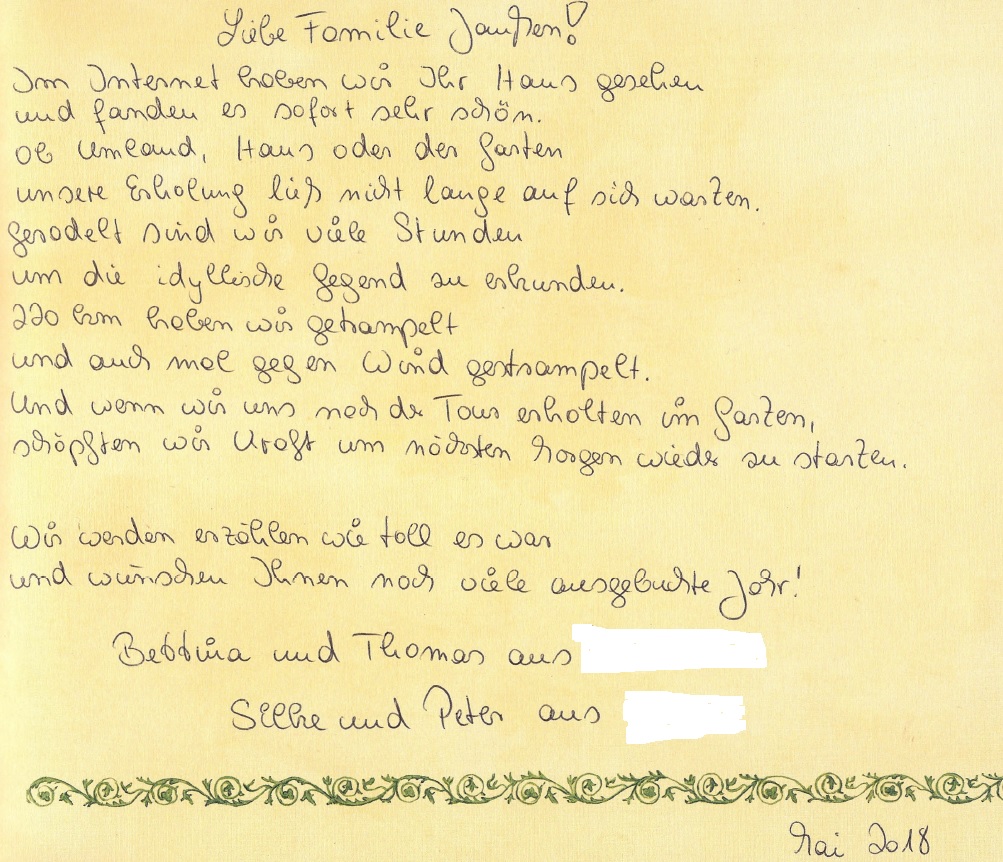 Liebe Familie Janßen!
Im Internet haben wir Ihr Haus gesehen
und fanden es sofort sehr schön.
Ob Umland, Haus oder der Garten
unsere Erholung ließ nicht lange auf sich warten.
Geradelt sind wir viele Stunden
um die idyllische Gegend zu erkunden.
220 km haben wir getrampelt
und auch mal gegen Wind gestrampelt.
Und wenn wir uns nach der Tour erholten im Garten,
schöpften wir Kraft um nächsten Morgen wieder zu starten.
Wir werden erzählen wie toll es war
und wünschen Ihnen noch viele ausgebuchte Jahr!
Bettina und Thomas aus
Silke und Peter aus
Mai 2018